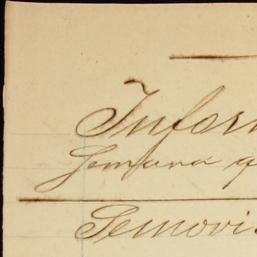 Infor
Semana q
Semovi